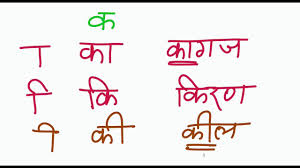 क
ा का कागज
ि कि किरण
ी की कील